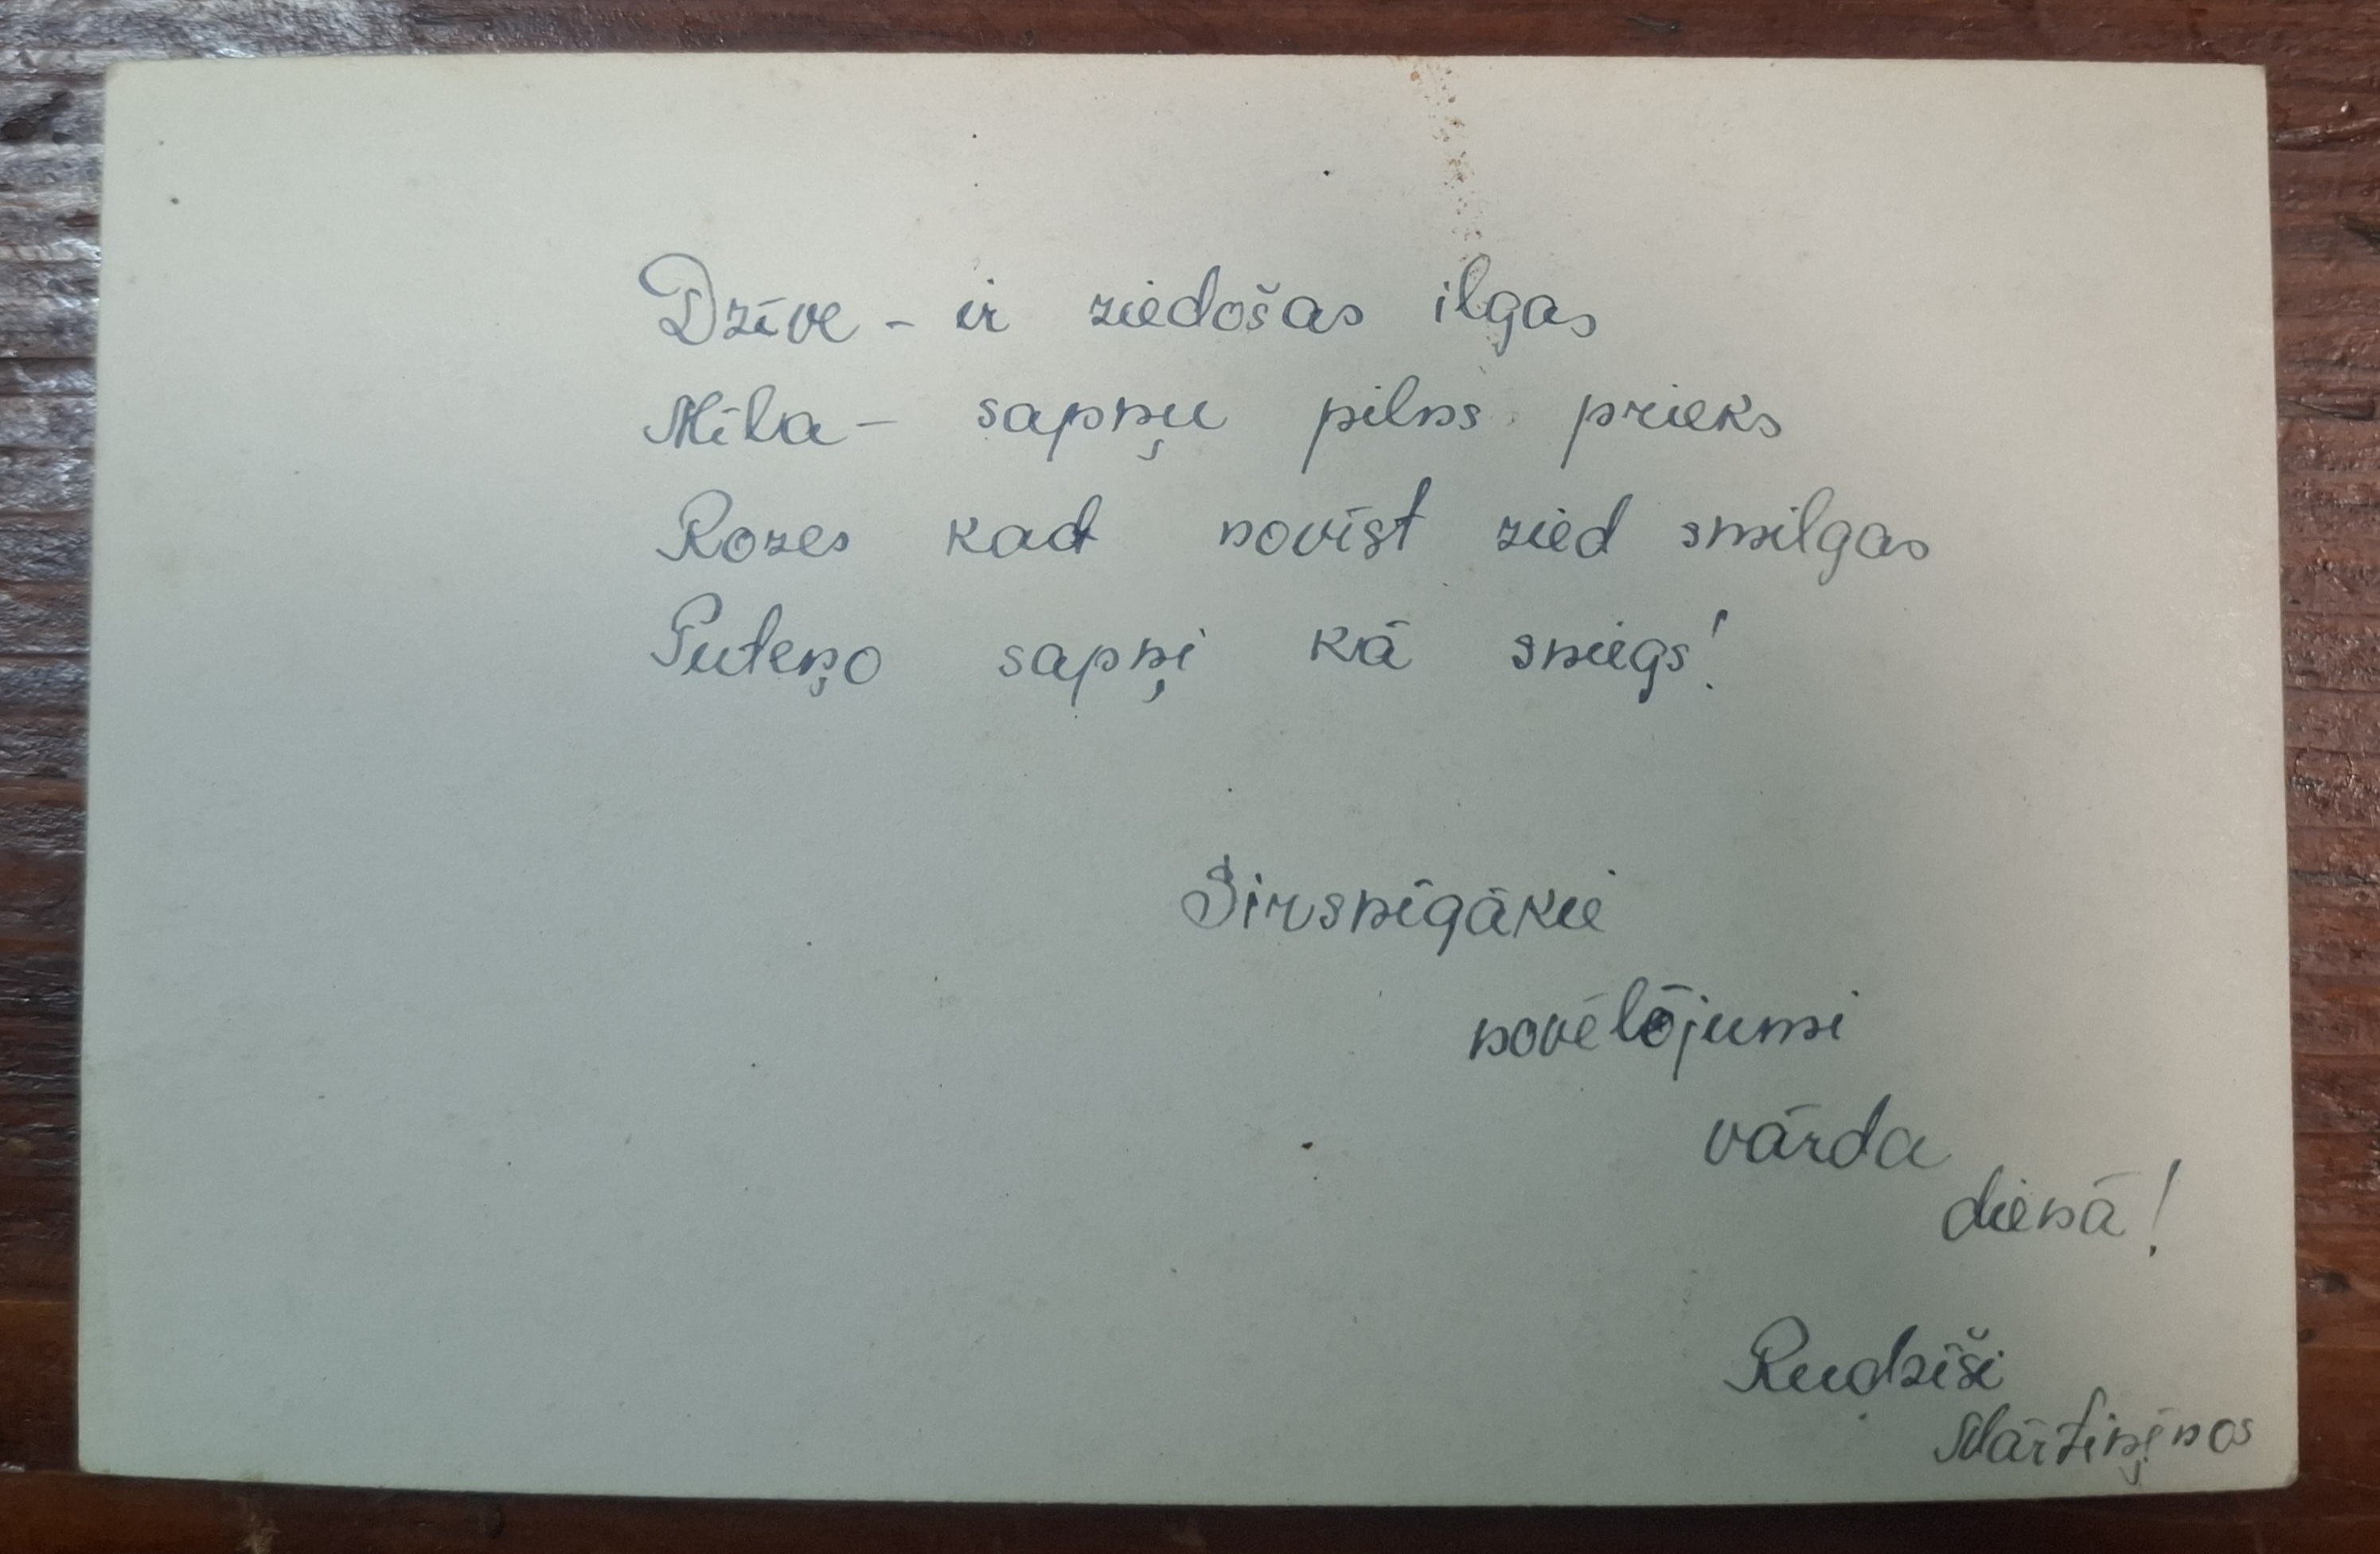 Dzīve - ir ziedošas ilgas
Mīla - sapņu pilns prieks
Rozes kad novīst zied smilgas
Puteņo sapņi kā sniegs!
Sirsnīgākie
novēlējumi
vārda
dienā!
Rudzīši
Mārtiņēnos